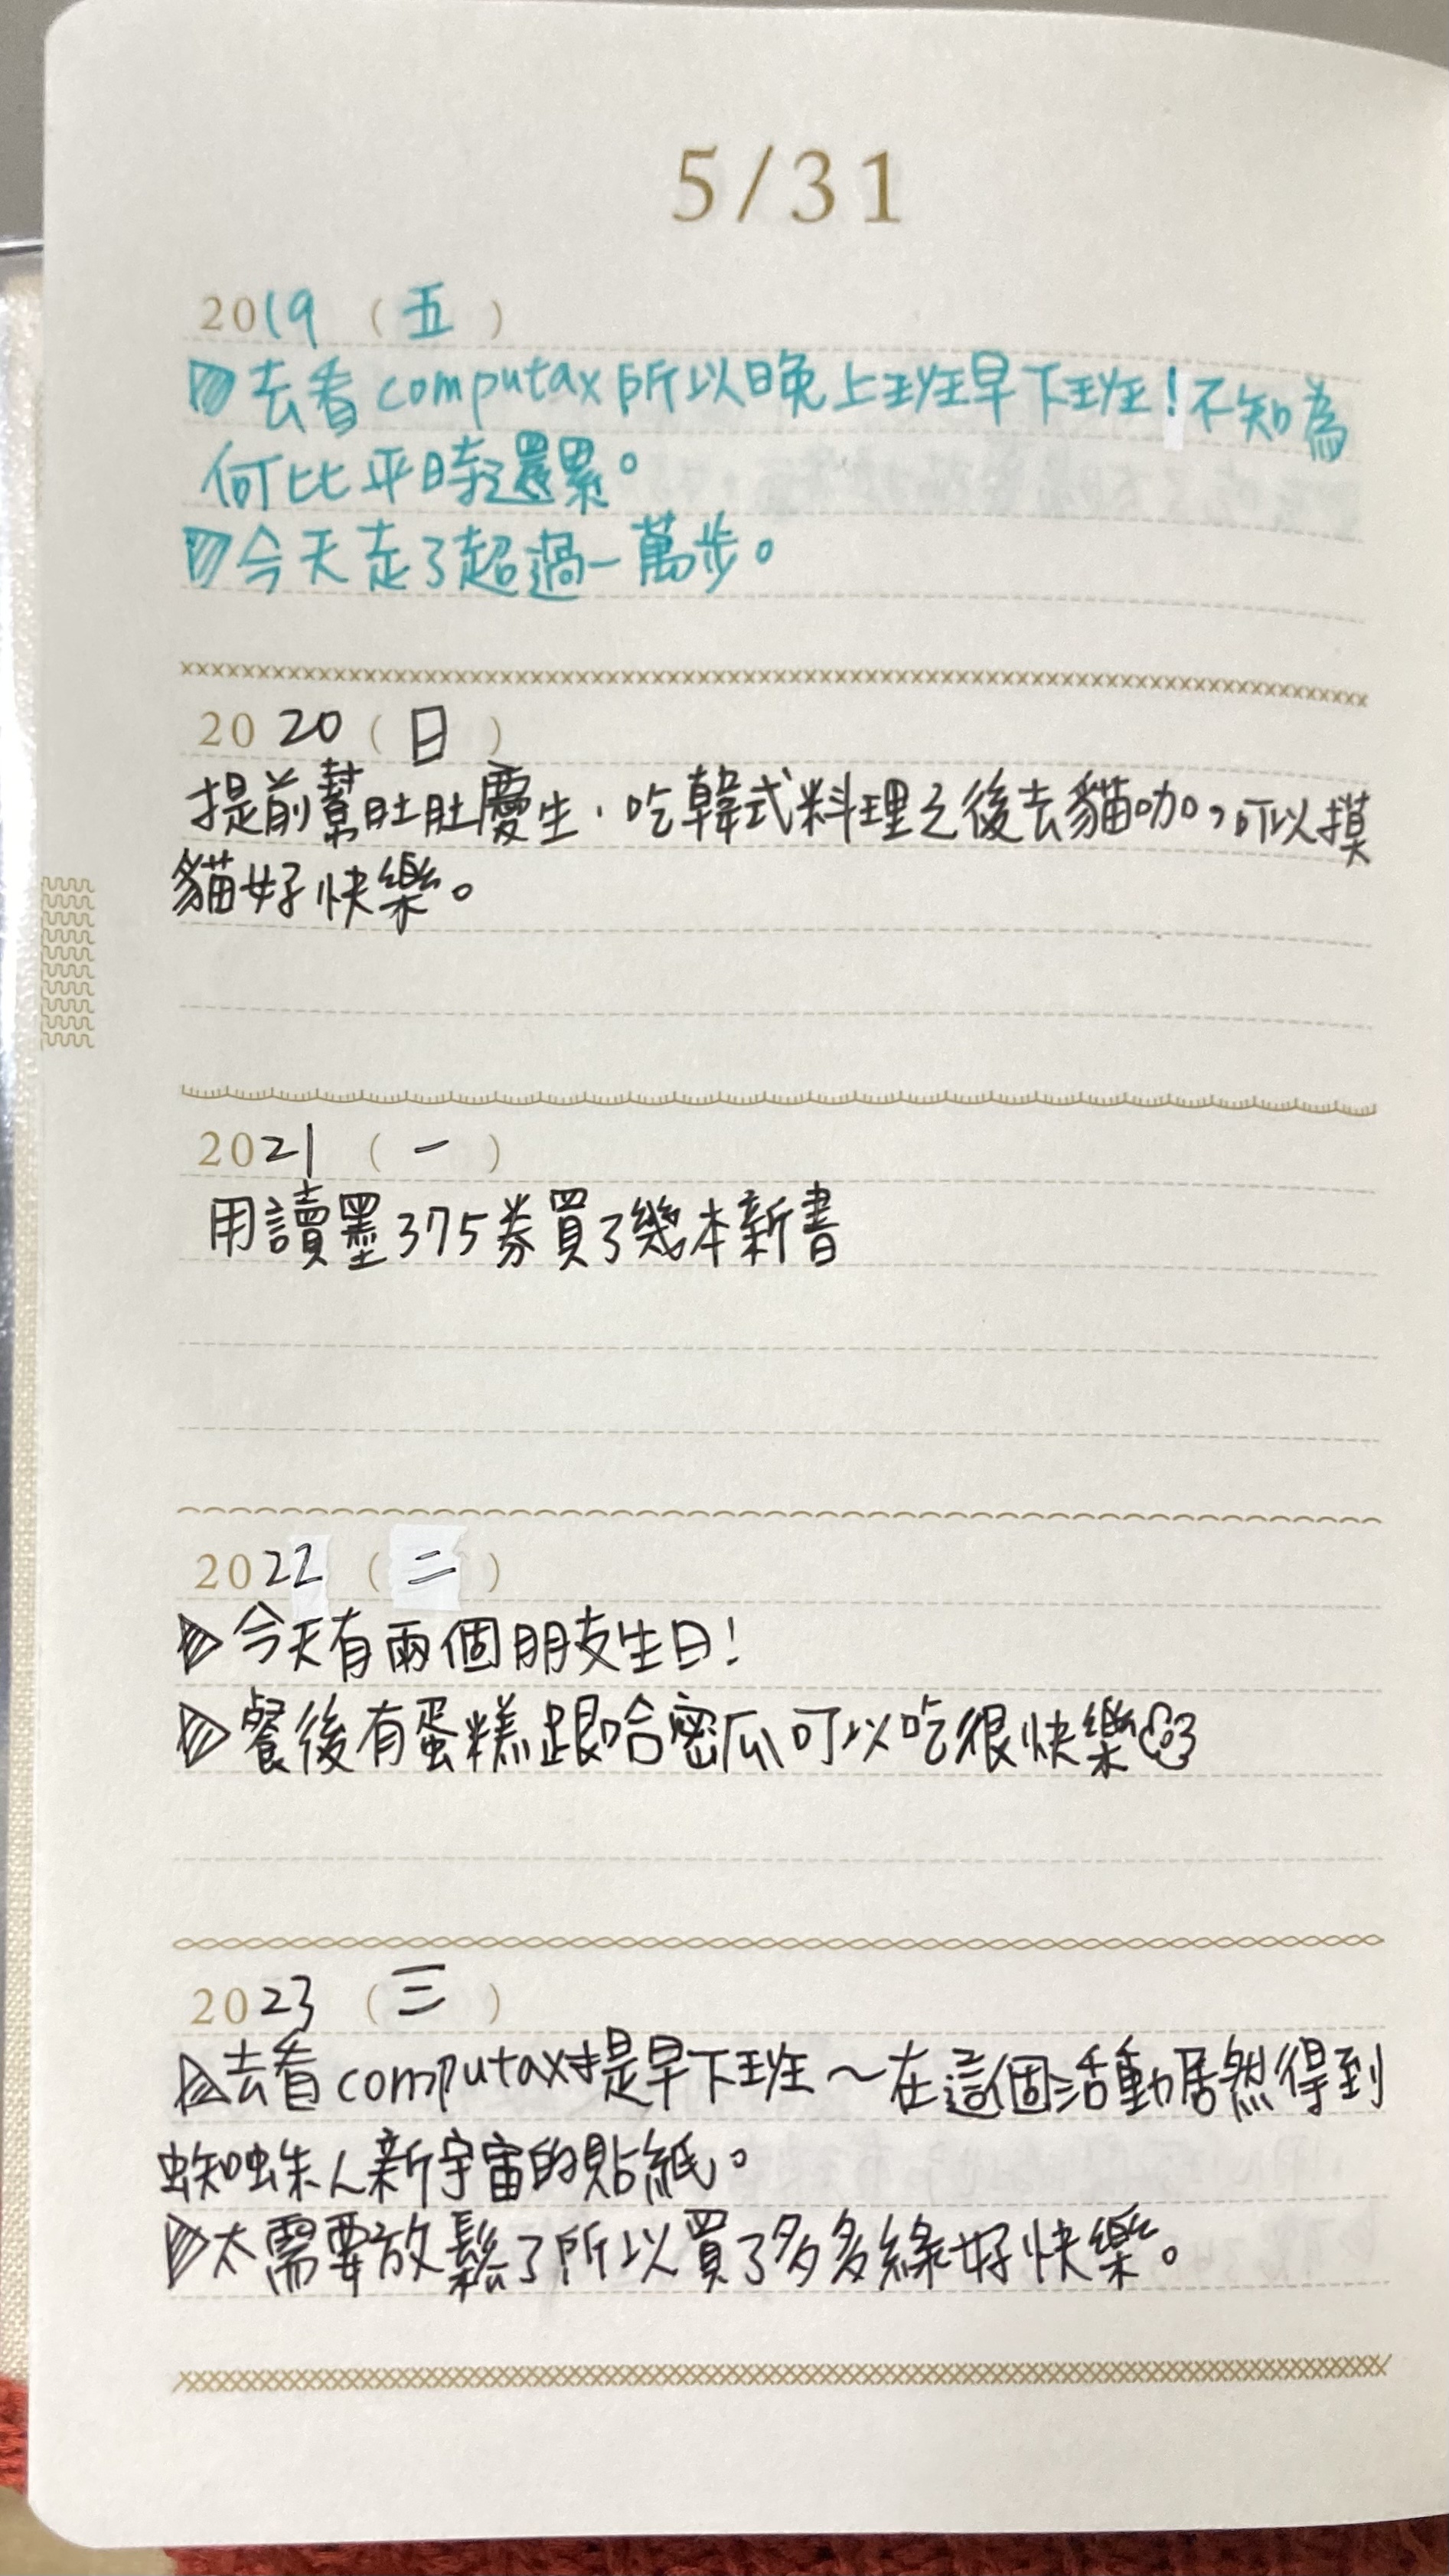 5/31
2019（五）
去看computax所以晚上班早下班！不知為
何比平時還累。
今天走了超過一萬步。
2020（日）
提前幫肚肚慶生，吃韓式料理之後去貓咖，可以摸
貓好快樂。
2021（一）
用讀墨375券買了幾本新書
2022（二）
今天有兩個朋友生日！
餐後有蛋糕跟哈密瓜可以吃很快樂
2023（三）
去看computax提早下班～在這個活動居然得到
蜘蛛人新宇宙的貼紙。
太需要放鬆了所以買了多多綠好快樂。